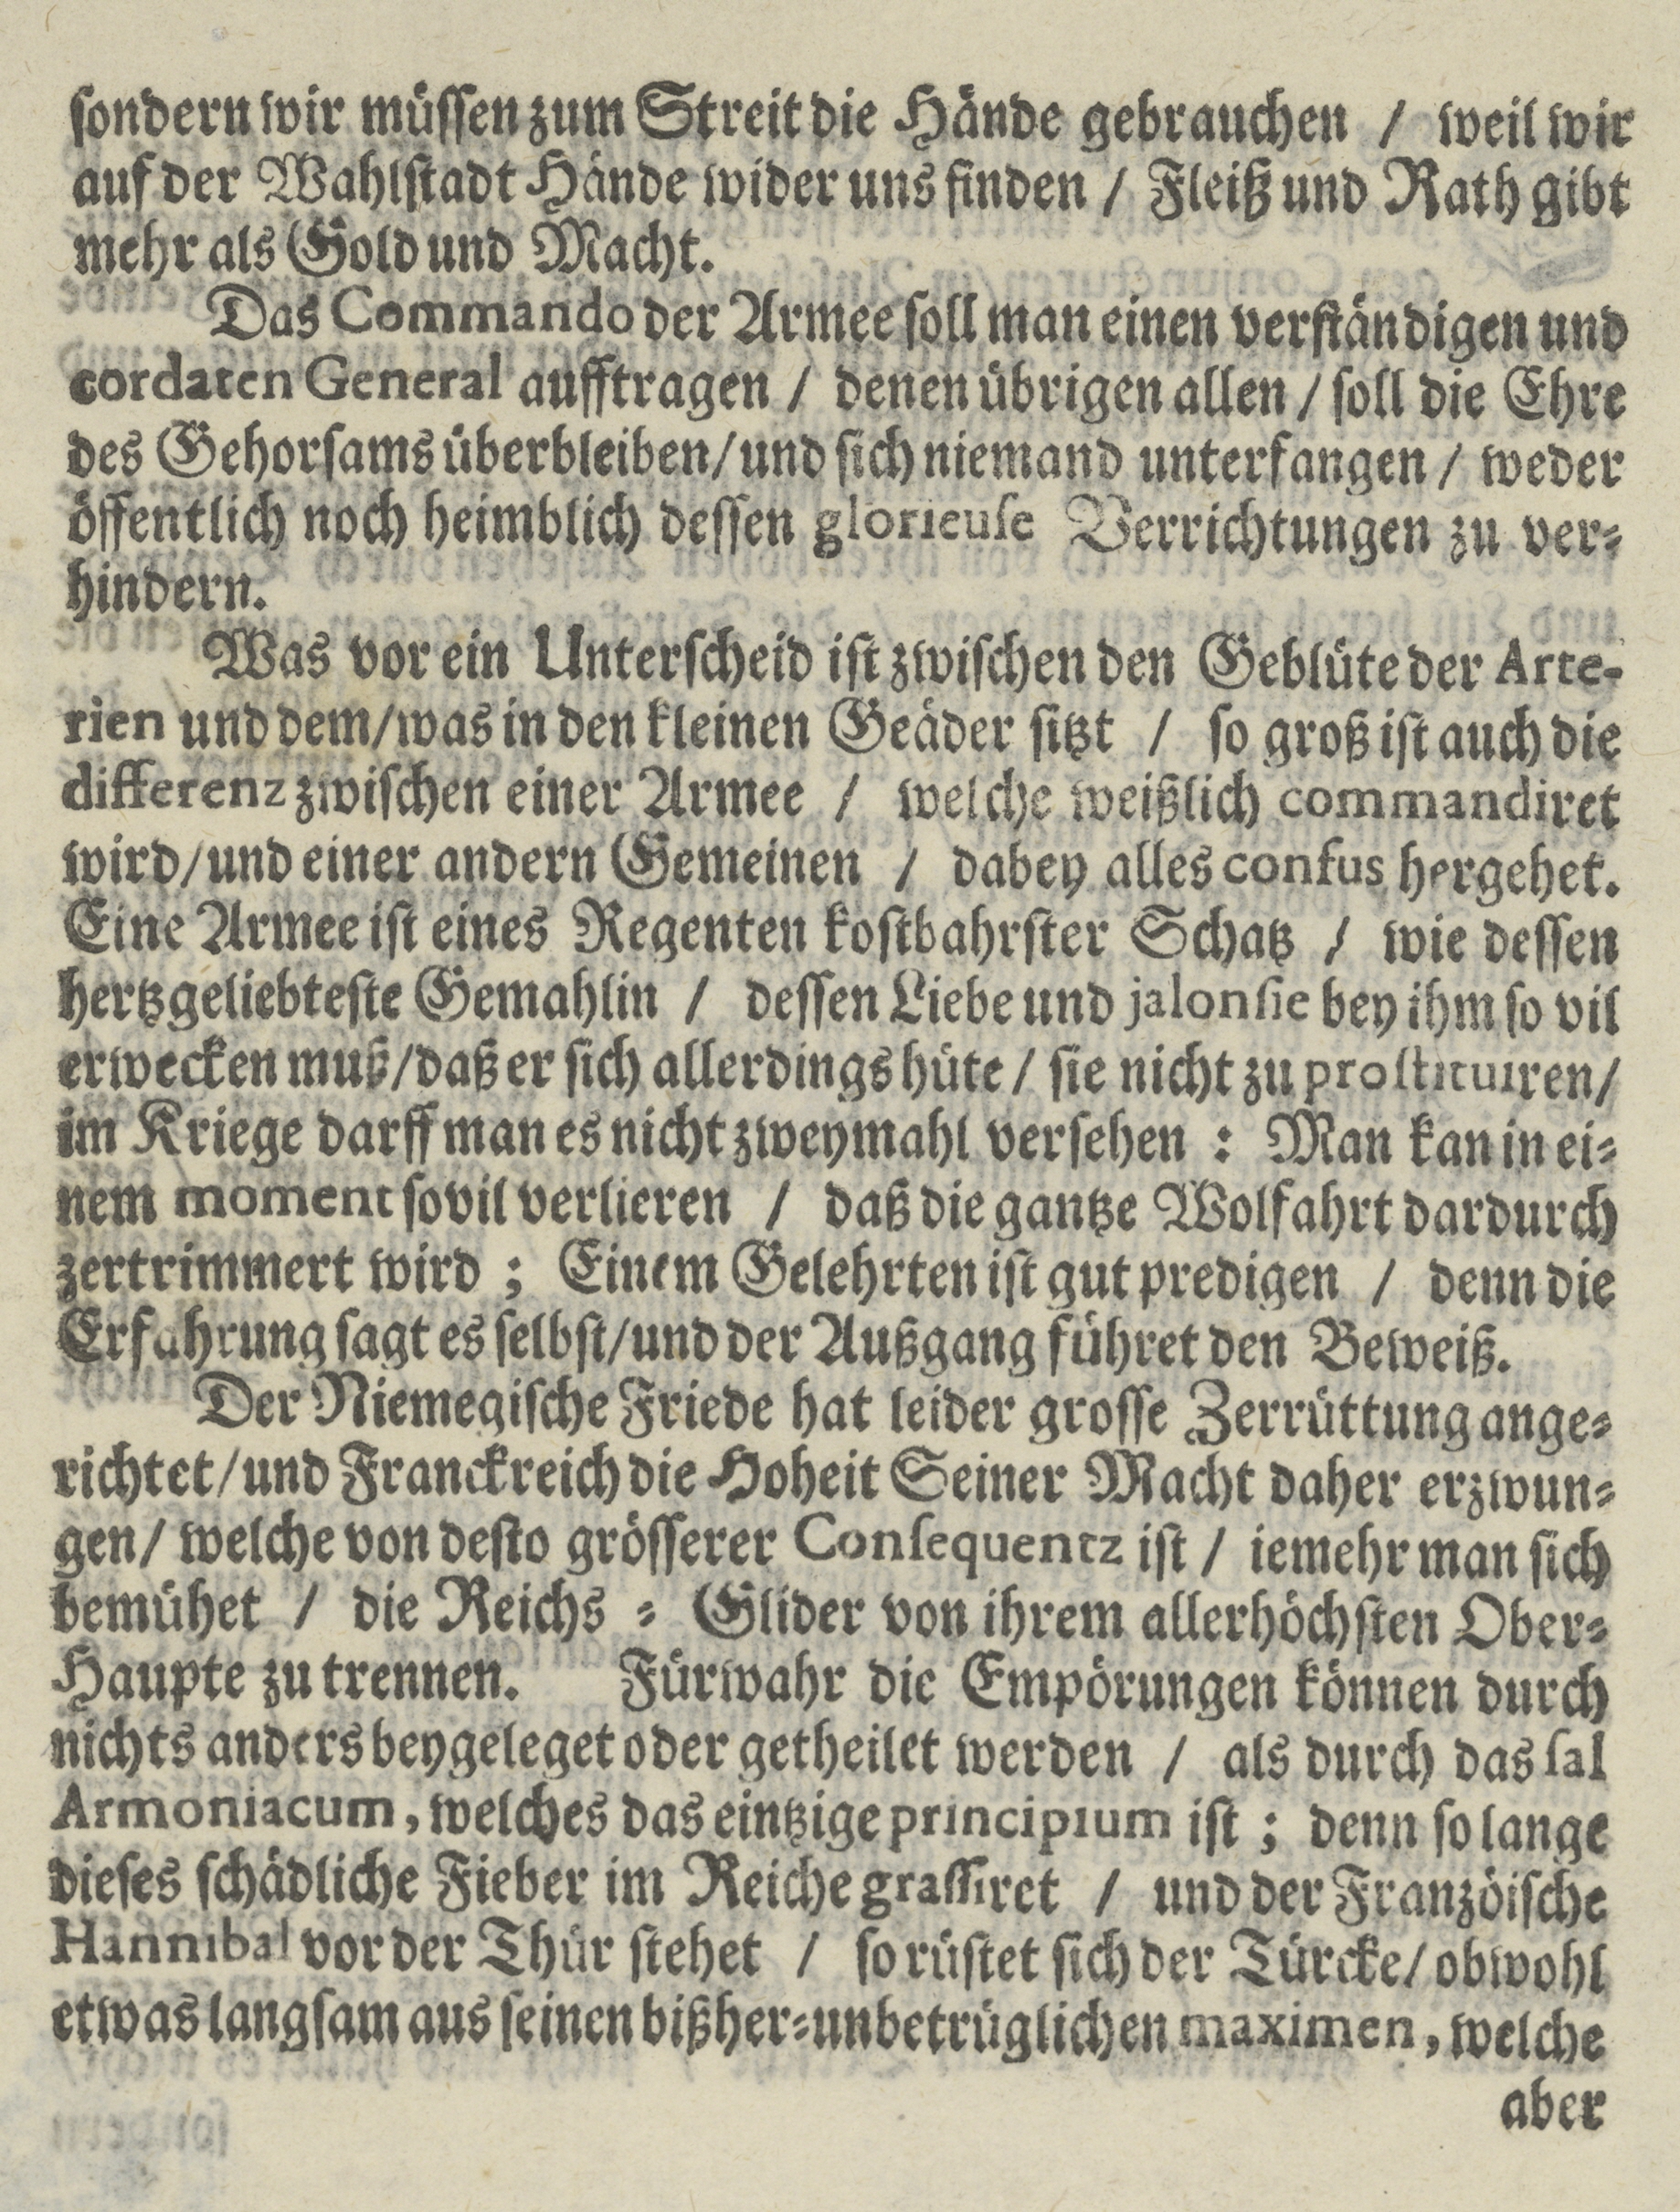 sondern wir müssen zum Streit die Hände gebrauchen / weil wir
auf der Wahlstadt Hände wider uns finden / Fleiß und Rath gibt
mehr als Gold und Macht.
Das Commando der Armee soll man einen verständigen und
cordaten General aufftragen / denen übrigen allen / soll die Ehre
des Gehorsams überbleiben/und sich niemand unterfangen / weder
öffentlich noch heimblich dessen glorieuse Verrichtungen zu ver-
hindern.
Was vor ein Unterscheid ist zwischen den Geblüte der Arte-
rien und dem/was in den kleinen Geäder sitzt / so groß ist auch die
differenz zwischen einer Armee / welche weißlich commandiret
wird/und einer andern Gemeinen / dabey alles confus hergehet.
Eine Armee ist eines Regenten kostbahrster Schatz / wie dessen
hertzgeliebteste Gemahlin / dessen Liebe und jalonsie bey ihm so vil
erwecken muß/daß er sich allerdings hüte / sie nicht zu prostituiren/
im Kriege darff man es nicht zweymahl versehen : Man kan in ei-
nem moment sovil verlieren / daß die gantze Wolfahrt dardurch
zertrimmert wird ; Einem Gelehrten ist gut predigen / denn die
Erfahrung sagt es selbst/und der Außgang führet den Beweiß.
Der Niemegische Friede hat leider grosse Zerrüttung ange-
richtet/und Franckreich die Hoheit Seiner Macht daher erzwun-
gen/ welche von desto grösserer Consequentz ist / iemehr man sich
bemühet / die Reichs - Glider von ihrem allerhöchsten Ober-
Haupte zu trennen. Fürwahr die Empörungen können durch
nichts anders beygeleget oder getheilet werden / als durch das sal
Armoniacum, welches das eintzige principium ist ; denn so lange
dieses schädliche Fieber im Reiche grassiret / und der Französche
Hannibal vor der Thür stehet / so rüstet sich der Türcke/ obwohl
etwas langsam aus seinen bißher-unbetrüglichen maximen, welche
aber